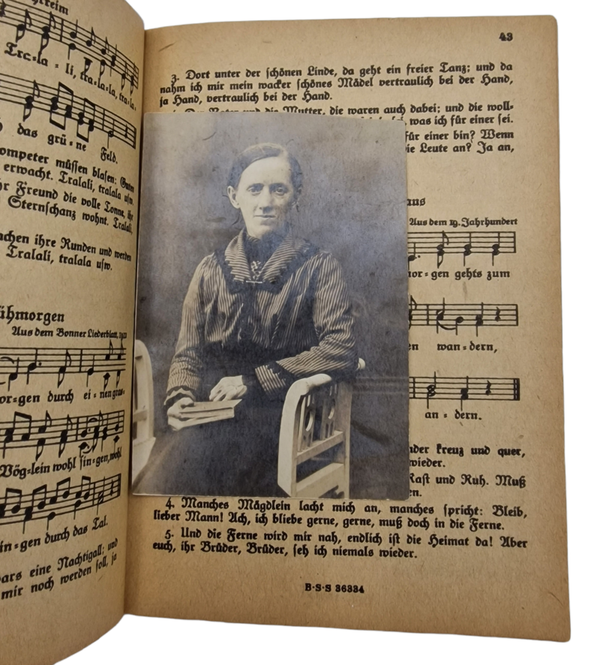 Tra-la - li, tra-la-la, tra-
das grü = ne Feld.
müssen blasen: Guten
erwacht. Tralali, tralala usw.
Freund die volle Tonne, ihr
Sternschanz wohnt. Tralali,
ihre Runden und werden
Tralali, tralala usw.
Aus dem Bonner Liederblatt,
durch ei = nen
Vög=lein wohl sin=gen, wohl
in=gen durch das Tal.
eine Nachtigall: und
mir noch werden soll, ja
43
3. Dort unter der schönen Linde, da geht ein freier Tanz; und da
nahm ich mir mein wacker schönes Mädel vertraulich bei der Hand,
ja Hand, vertraulich bei der Hand.
Mutter, die waren auch dabei; und die woll-
was ich für einer sei.
für einer bin? Wenn
die Leute an? Ja an,
aus
Aus dem 19. Jahrhundert
mor=gen gehts zum
wan = dern,
an = dern.
kreuz und quer,
wieder.
Rast und Ruh. Muß
4. Manches Mägdlein lacht mich an, manches spricht: Bleib,
lieber Mann! Ach, ich bliebe gerne, gerne, muß doch in die Ferne.
5. Und die Ferne wird mir nah, endlich ist die Heimat da! Aber
euch, ihr Brüder, Brüder, seh ich niemals wieder.
B·S·S 36334